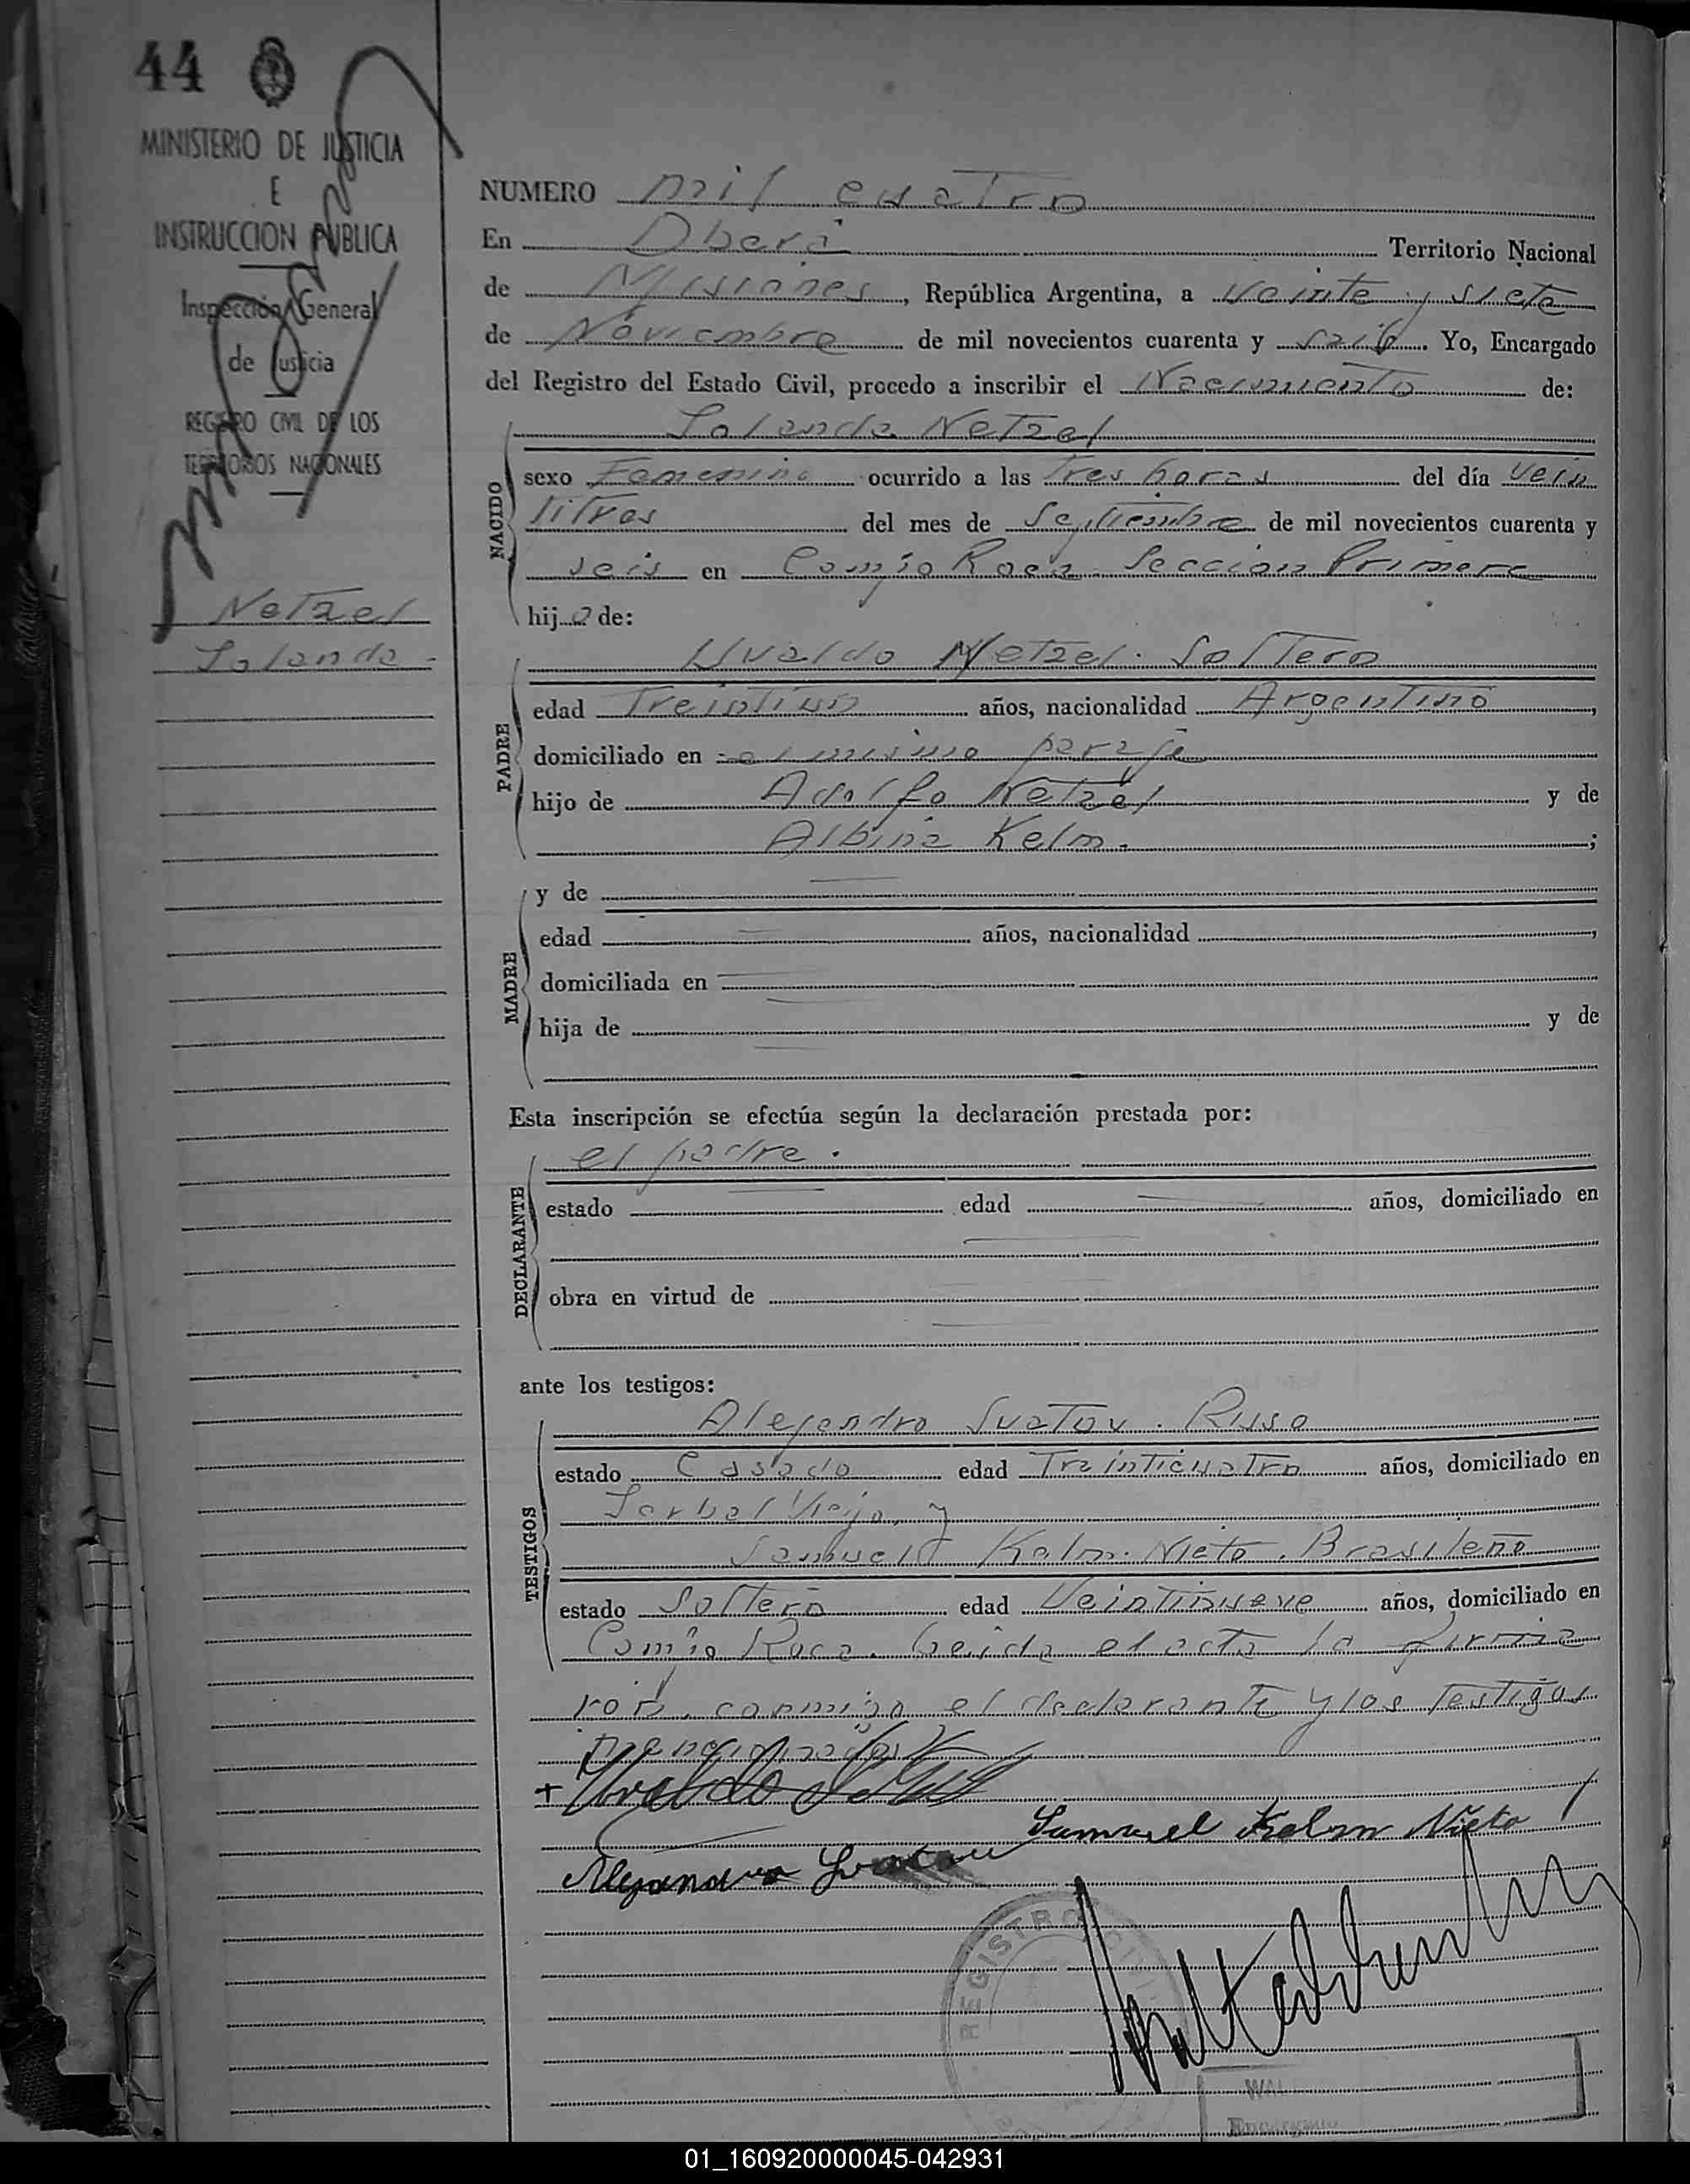 44
MINISTERIO DE JUSTICIA
E
INSTRUCCION PUBLICA
Inspección General
de Justicia
REGISTRO CIVIL DE LOS
TERRITORIOS NACIONALES
Netzel
Iolanda
NUMERO mil cuatro
En Oberá Territorio Nacional
de Misiones, República Argentina, a veinte y siete
de Noviembre de mil novecientos cuarenta y seis. Yo, Encargado
del Registro del Estado Civil, procedo a inscribir el Nacimiento de:
Iolanda Netzel
NACIDO
sexo Femenino ocurrido a las tres horas del día vein
titres del mes de Septiembre de mil novecientos cuarenta y
seis en Campo Roca Sección Primera
hija de:
PADRE
Uvaldo Netzel. Soltero
edad Treintiun años, nacionalidad Argentino,
domiciliado en el mismo paraje
hijo de Adolfo Netzel y de
Albina Kelm. ;
MADRE
y de
edad años, nacionalidad ,
domiciliada en
hija de y de
Esta inscripción se efectúa según la declaración prestada por:
DECLARANTE
el padre.
estado edad años, domiciliado en
obra en virtud de
ante los testigos:
TESTIGOS
Alejandro Suatov. Ruso
estado Casado edad Treinticuatro años, domiciliado en
Yerbal Viejo, y
Samuel Kelm Nieto. Brasileño
estado Soltero edad Veintinueve años, domiciliado en
Campo Roca. Leída el acta la firma
ron, conmigo el declarante y los testigos
mencionados
+ Uvaldo Netzel
Samuel Kelm Nieto
Alejandro
REGISTRO CIVIL
WAL
Encargado
01_160920000045-042931